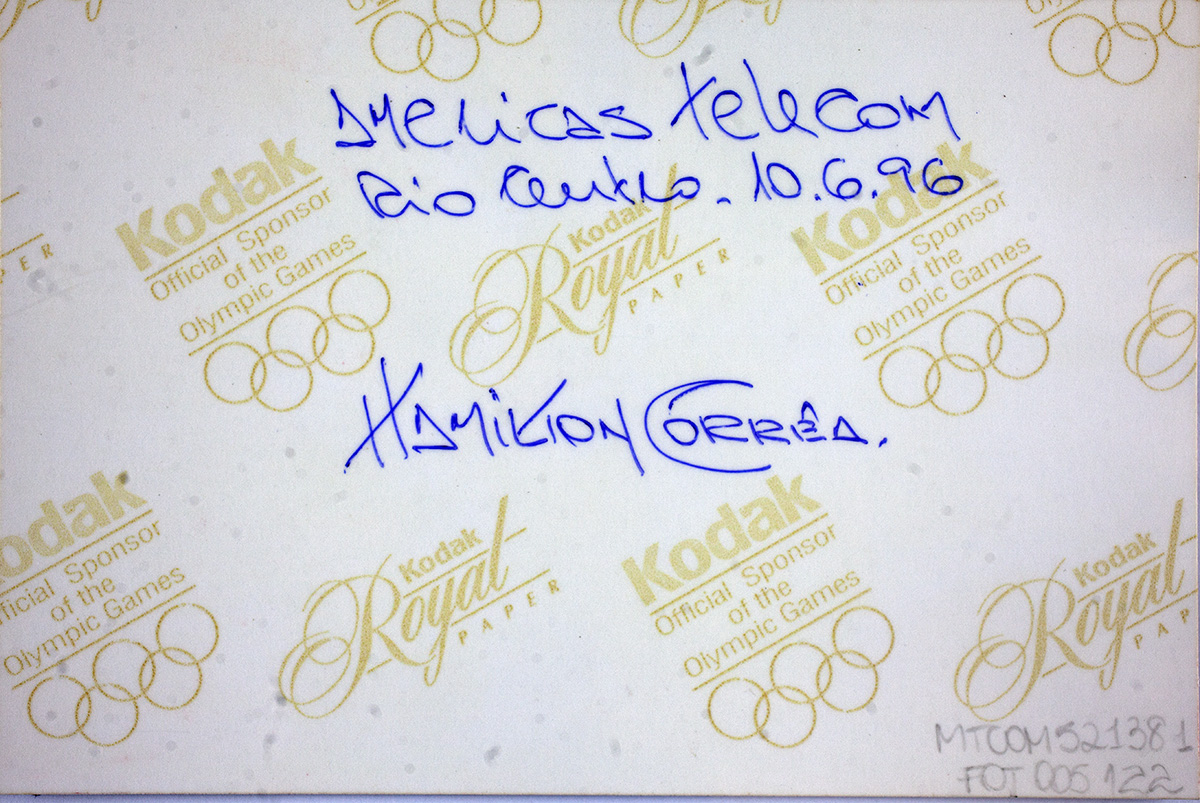 Americas Telecom
Rio Centro. 10.6.96
Kodak
Official Sponsor
of the
Olympic Games
Kodak
Royal
PAPER
Kodak
Official Sponsor
of the
Olympic Games
PER
Hamilton Corrêa.
odak
ficial Sponsor
of the
Olympic Games
Kodak
Royal
PAPER
Kodak
Official Sponsor
of the
Olympic Games
Kodak
Royal
PAP
MTCOM521381
FOT 005 122